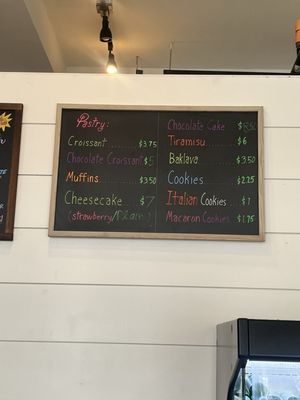 Pastry:
Croissant ........ $3.75
Chocolate Croissant $5
Muffins ........ $3.50
Cheesecake $7
(strawberry/Plain)
Chocolate Cake
Tiramisu ..... $6
Baklava ...... $3.50
Cookies ...... $2.25
Italian Cookies $1
Macaron Cookies $1.75